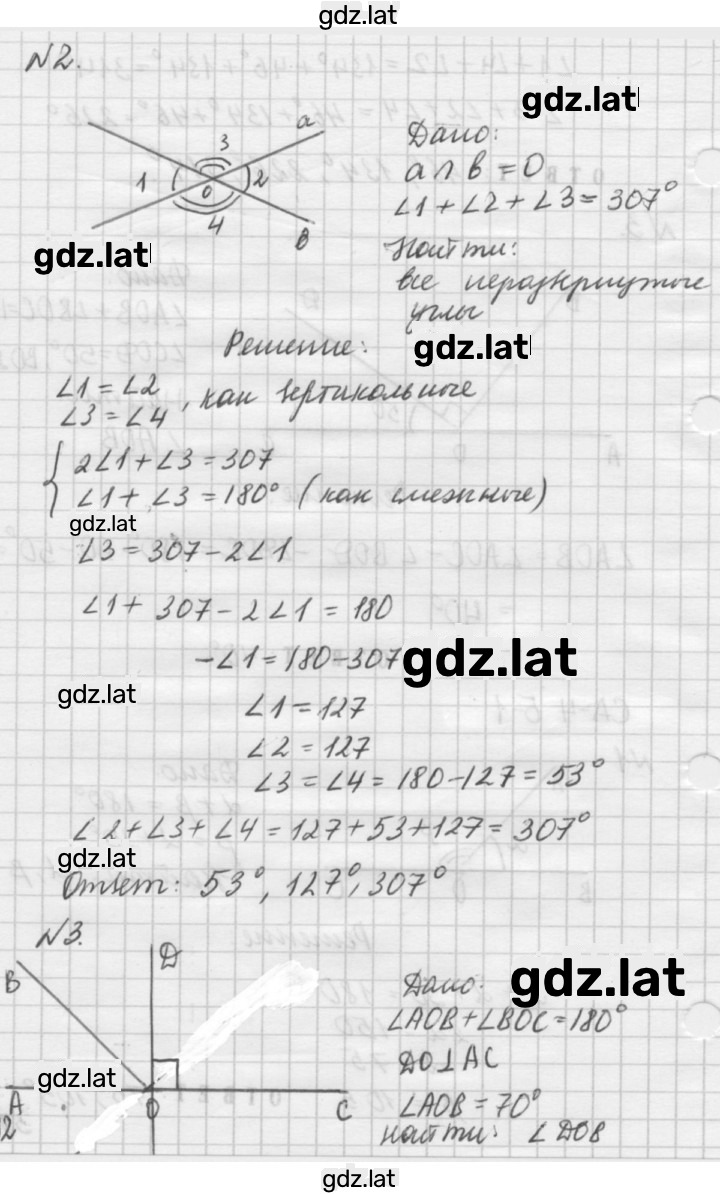 gdz.lat
N2.
gdz.lat
a
3
1
2
0
4
в
Дано:
a ∩ в = 0
∠1 + ∠2 + ∠3 = 307°
gdz.lat
Найти:
все неразвернутые
углы
Решение:
gdz.lat
∠1 = ∠2
∠3 = ∠4 , как вертикальные
2∠1 + ∠3 = 307
∠1 + ∠3 = 180° (как смежные)
gdz.lat
∠3 = 307 - 2∠1
∠1 + 307 - 2∠1 = 180
-∠1 = 180 - 307
gdz.lat
gdz.lat
∠1 = 127
∠2 = 127
∠3 = ∠4 = 180 - 127 = 53°
∠2 + ∠3 + ∠4 = 127 + 53 + 127 = 307°
gdz.lat
Ответ: 53°, 127°, 307°
N3.
D
B
gdz.lat
A
0
C
12
gdz.lat
Дано:
∠AOB + ∠BOC = 180°
DO ⊥ AC
∠AOB = 70°
найти: ∠DOB
gdz.lat